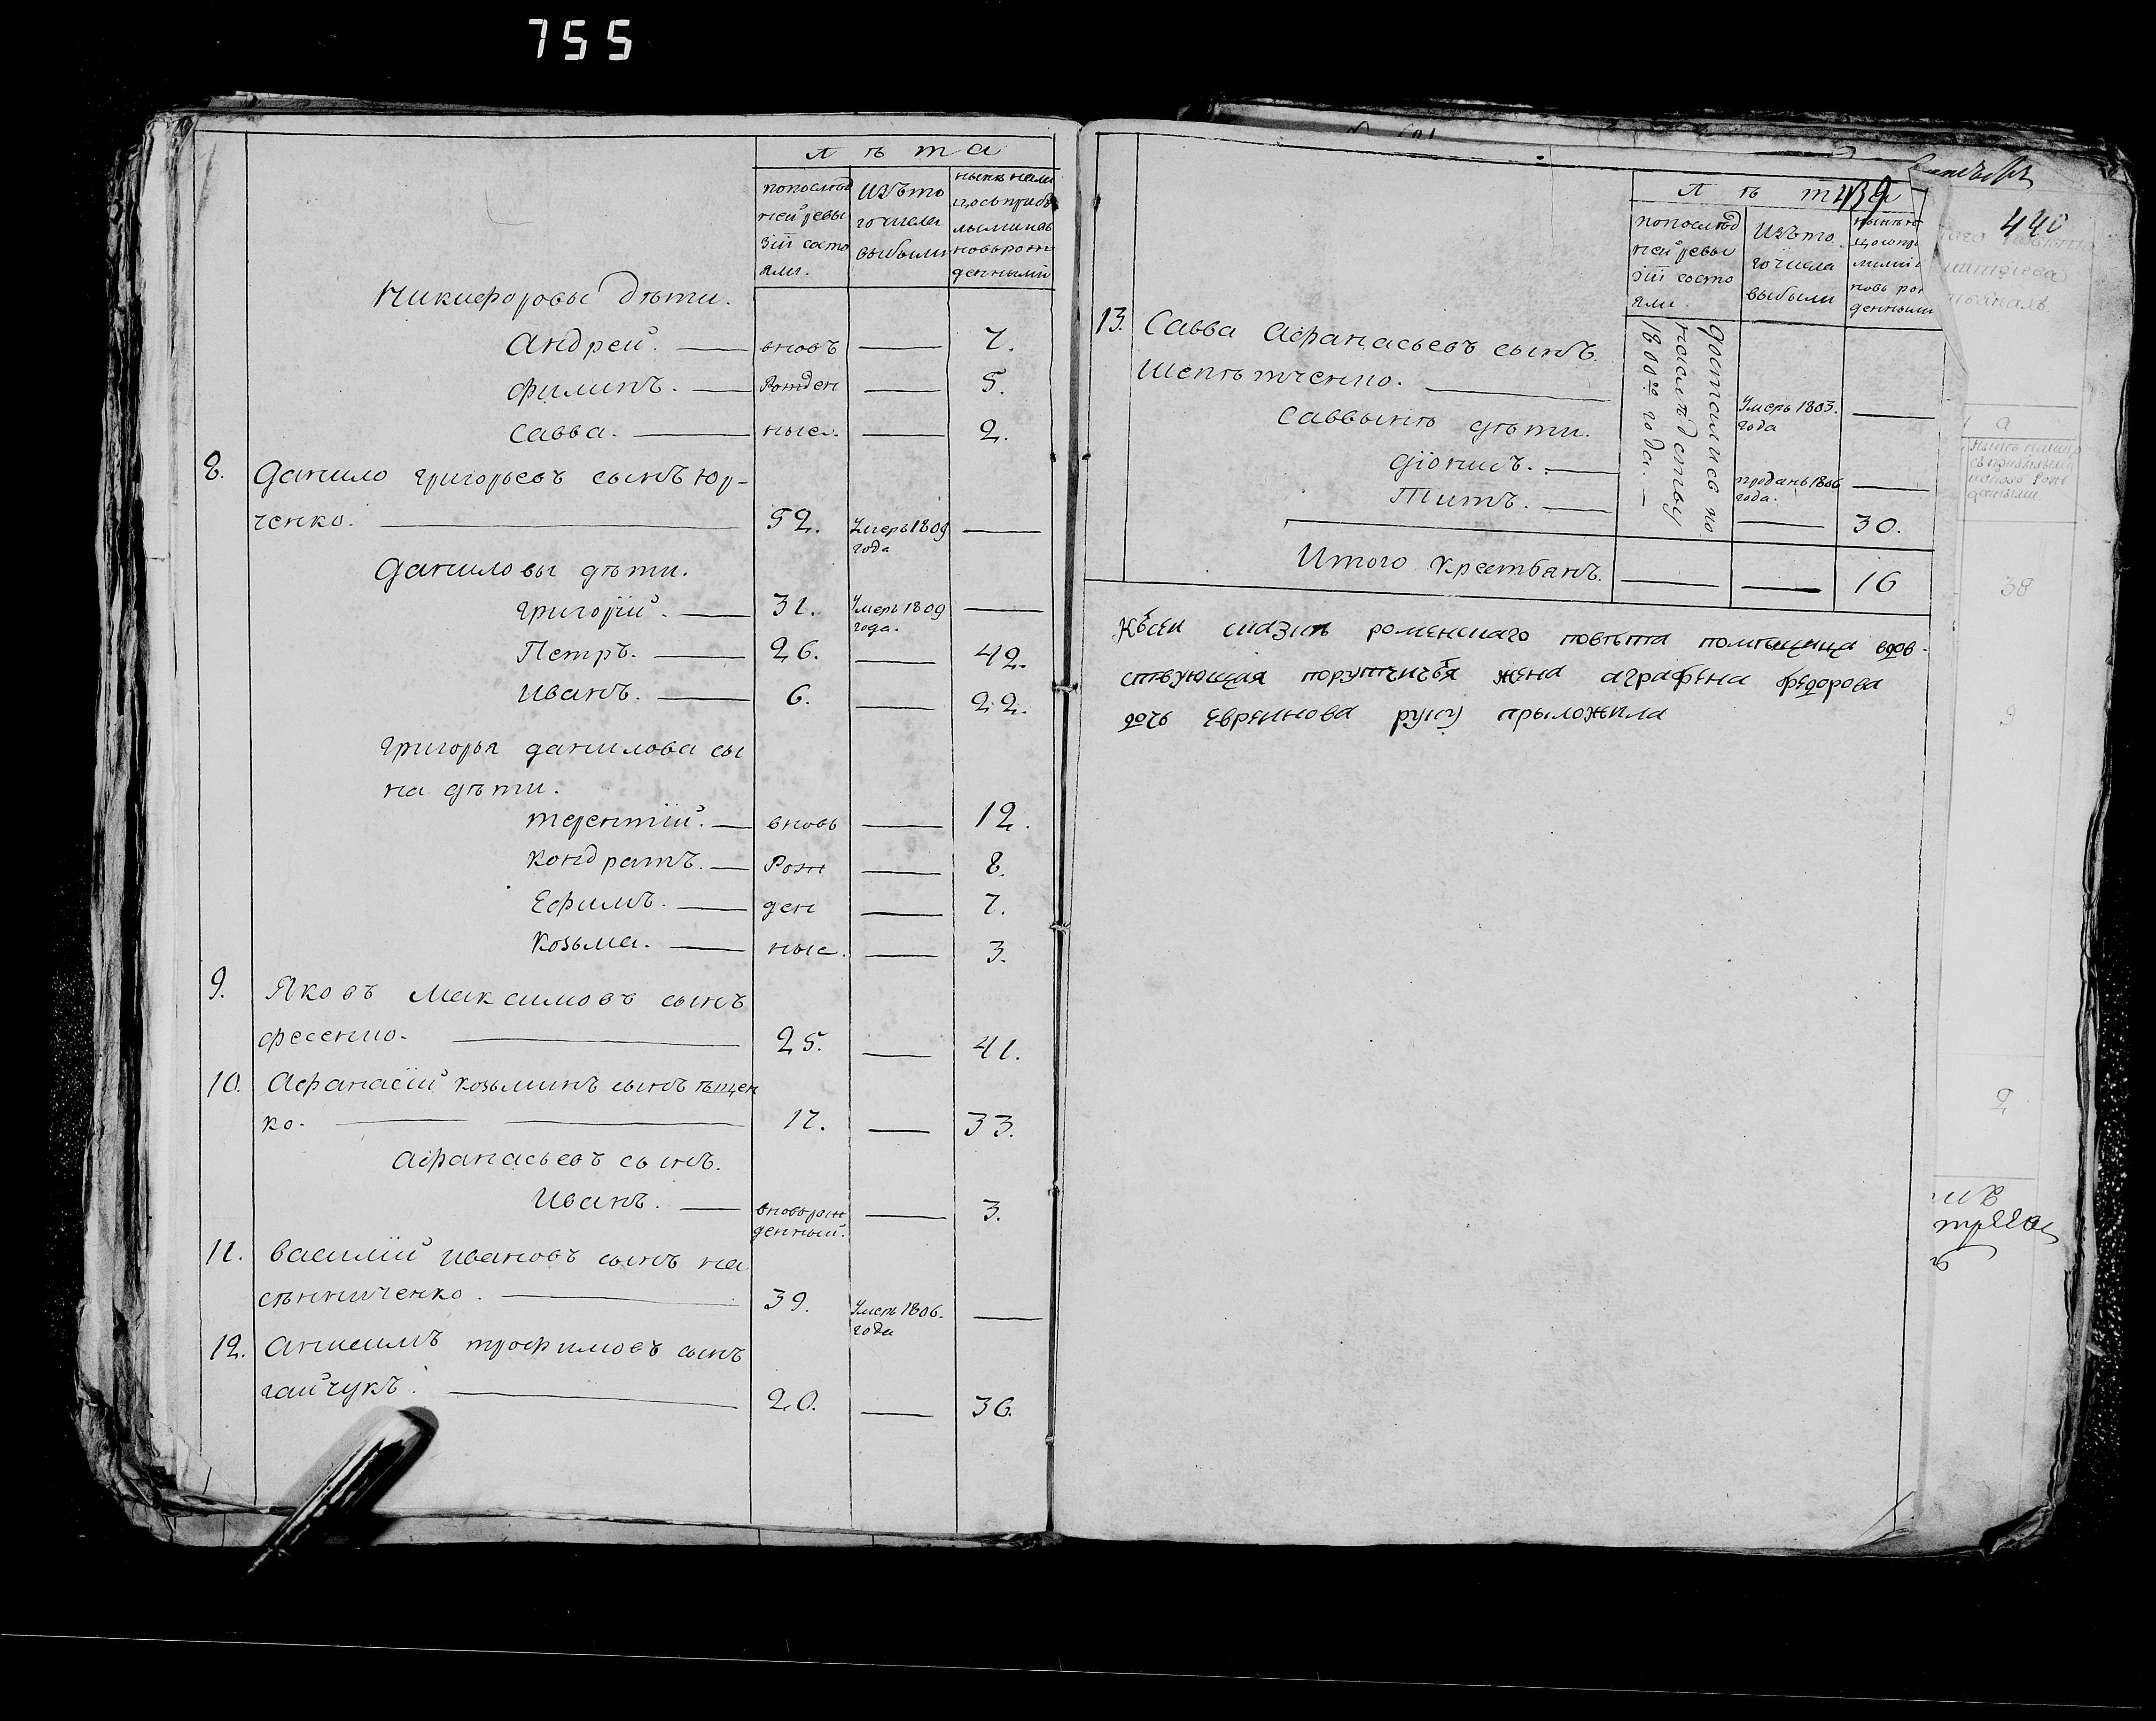 755
лѣта
попослѣд ней ревы зіи состо яли.
Изъто гочисла выбыли
нынѣ нали цосьприбы лыминов новьрож денными
Никифоровы дѣти.
Андрей. — вновь — 7.
Филипъ. — Рожден — 5.
Савва. — ные. — 2.
8. Данило григорьевъ сынъ Юр-
ченко. — 52. Умеръ 1809 года —
Даниловы дѣти.
григорїй. — 31. Умеръ 1809 года. —
Петръ. — 26. — 42.
Иванъ. — 6. — 22.
григорья данилова сы
на дѣти.
терентїй. — вновь — 12.
кондратъ. — Рож — 8.
Ефимъ. — ден — 7.
козьма. — ные. — 3.
9. Яковъ Максимовъ сынъ
фесенко. — 25. — 41.
10. Афанасїй козьминъ сынъ
ко. — 17. — 33.
Афанасьевъ сынъ.
Иванъ. — вноворож денный. — 3.
11. Василїй ивановъ сынъ на
сѣнниченко. — 39. Умеръ 1806. года —
12. Анисимъ трофимовъ сынъ
гайчукъ. — 20. — 36.
439
лѣта
попослѣд ней ревы зіи состо яли.
Изъто гочисла выбыли
новь рож денными
13. Савва Афанасьевъ сынъ
Шепѣтченко. — Умеръ 1803. года —
Саввины дѣти.
Дїонисъ. — проданъ 1806 года. —
Титъ. — — 30.
Досталисѣ по наслѣдству 1800го года. —
Итого крестьянъ. — — 16
Ксей сказкѣ роменскаго повѣта помѣщица вдов-
ствующая порутчичья жена аграфена федорова
дочь евреинова руку прыложила
440
38
9